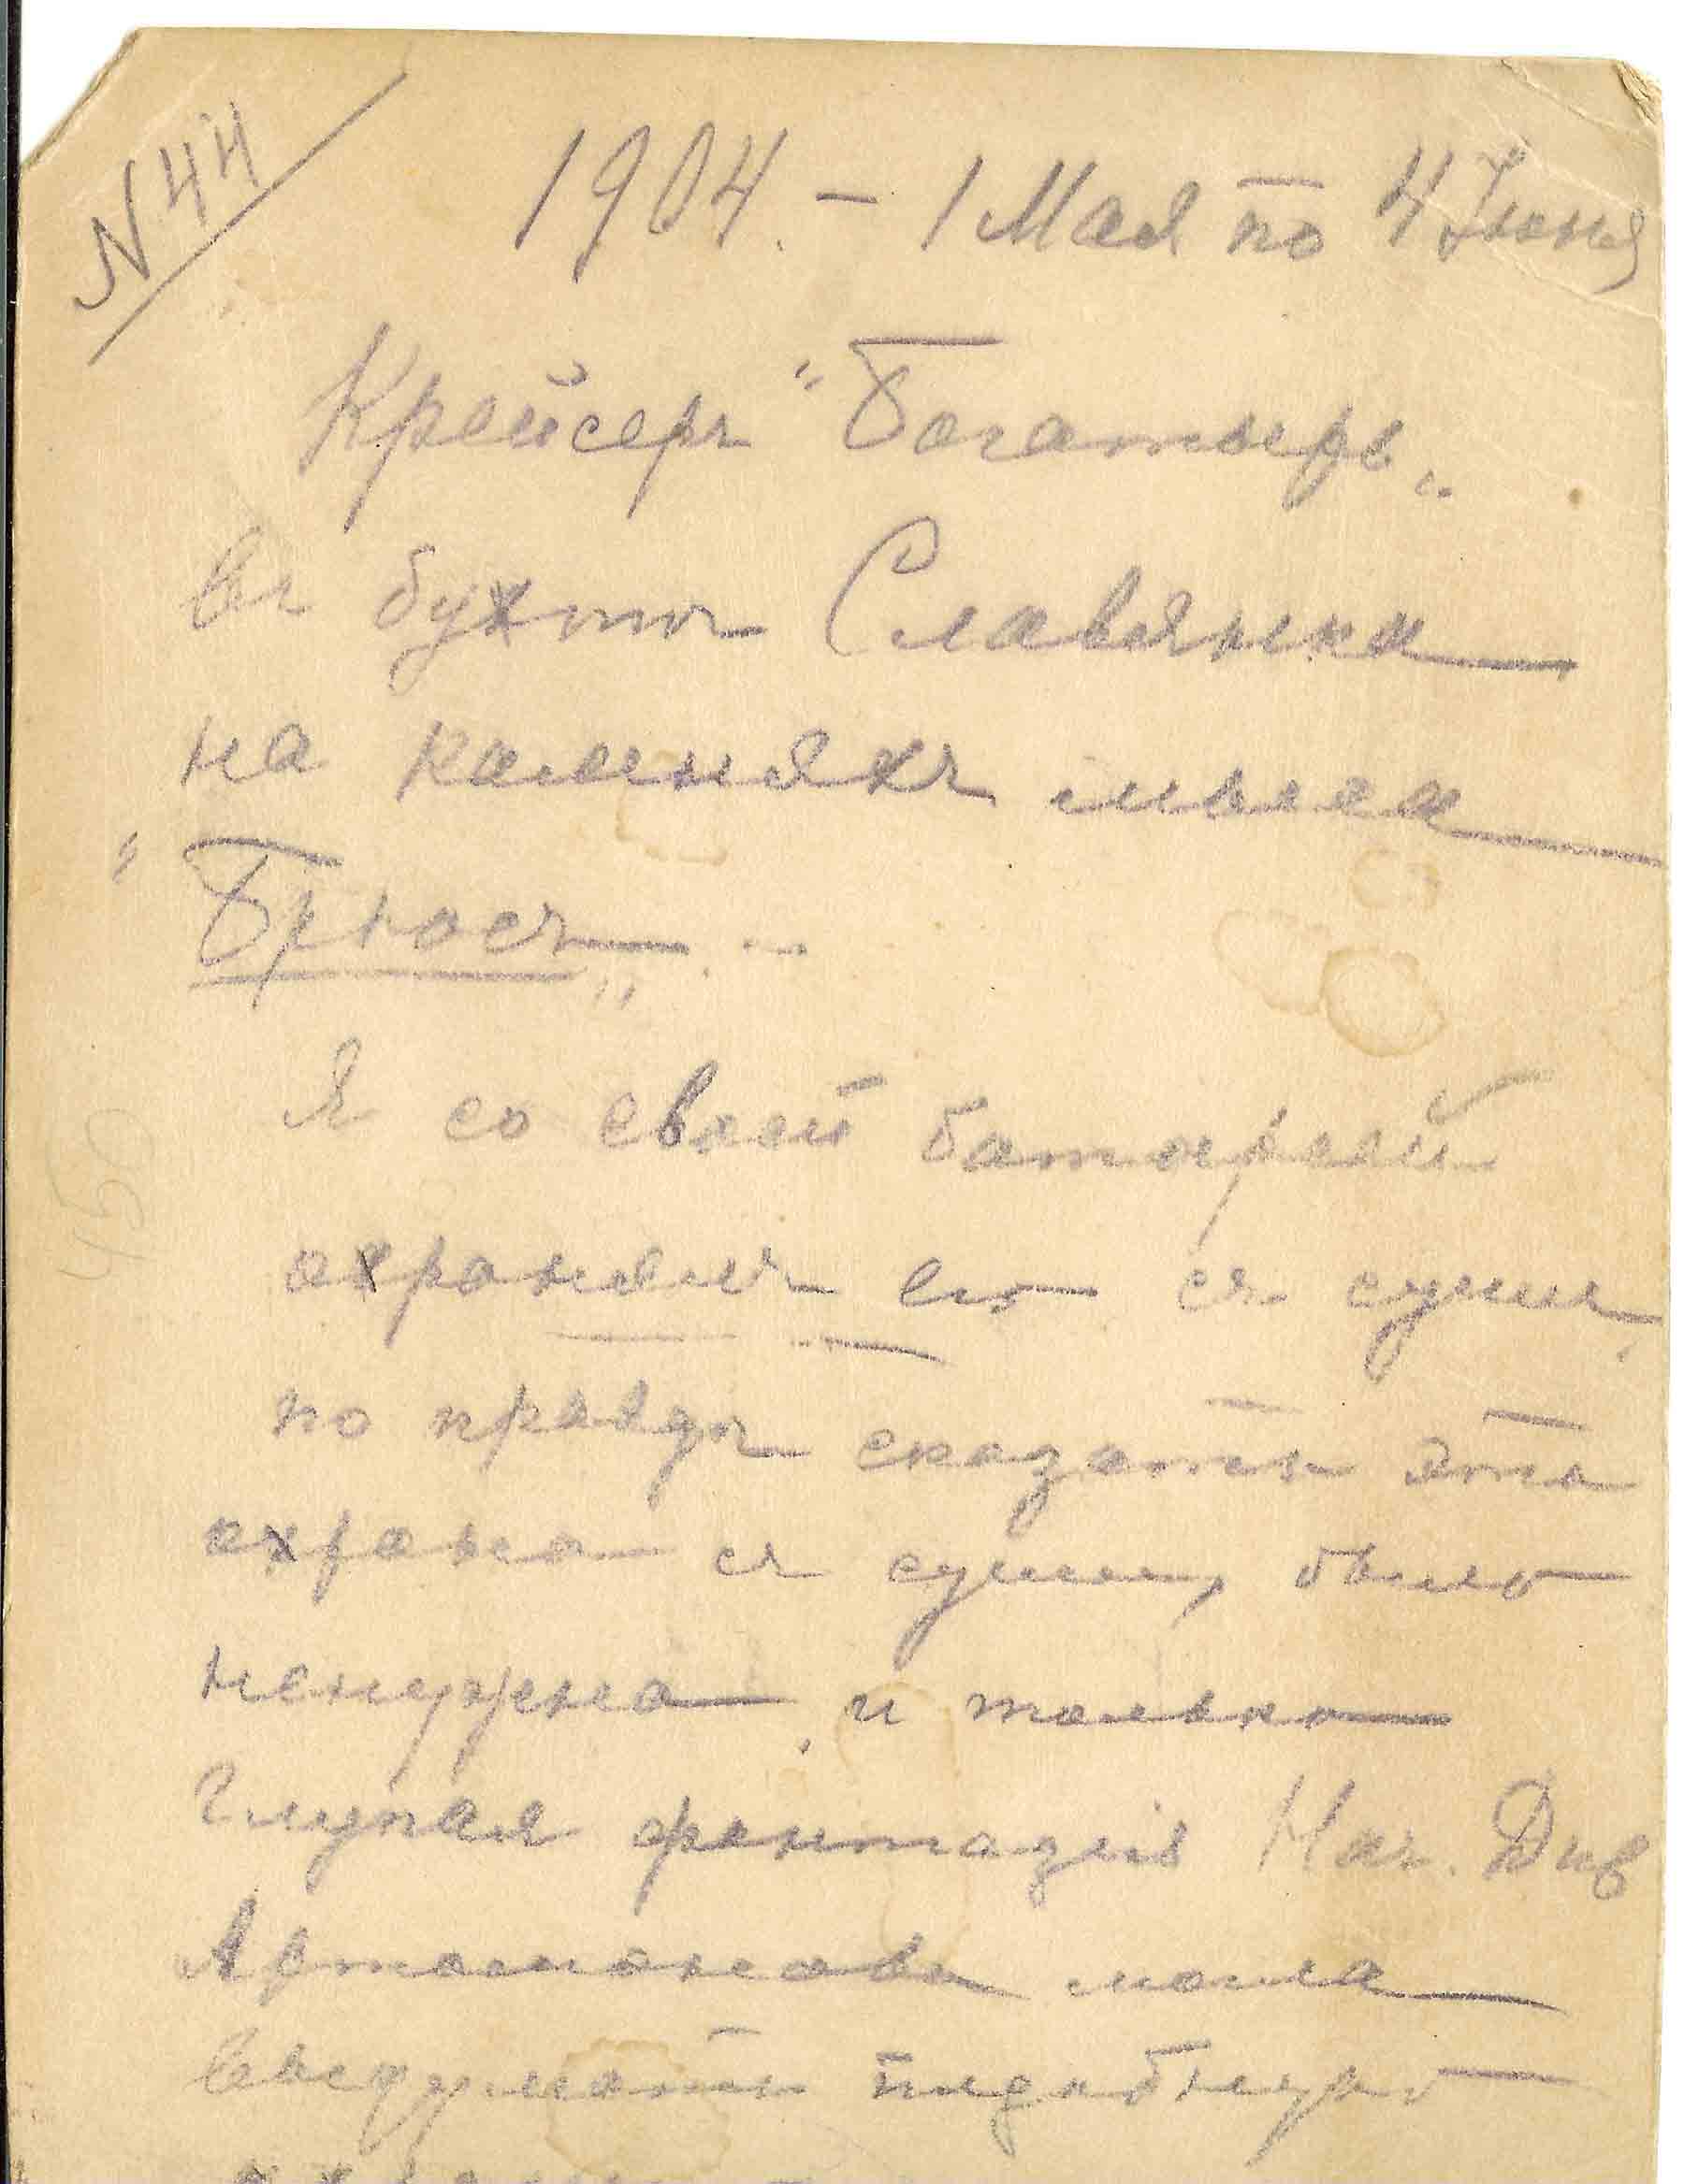 N 44
1904. – 1 Мая по 4 Іюня
Крейсеръ "Богатырь„
въ бухтѣ Славянка
на камняхъ мыса
"Брюсъ„
Я со своей батареей
охранялъ его съ суши,
по правдѣ сказать эта
охрана съ суши, было
ненужна, и только
глупая фантазія Нач. Див
Артамонова могла
выдумать подобную
450